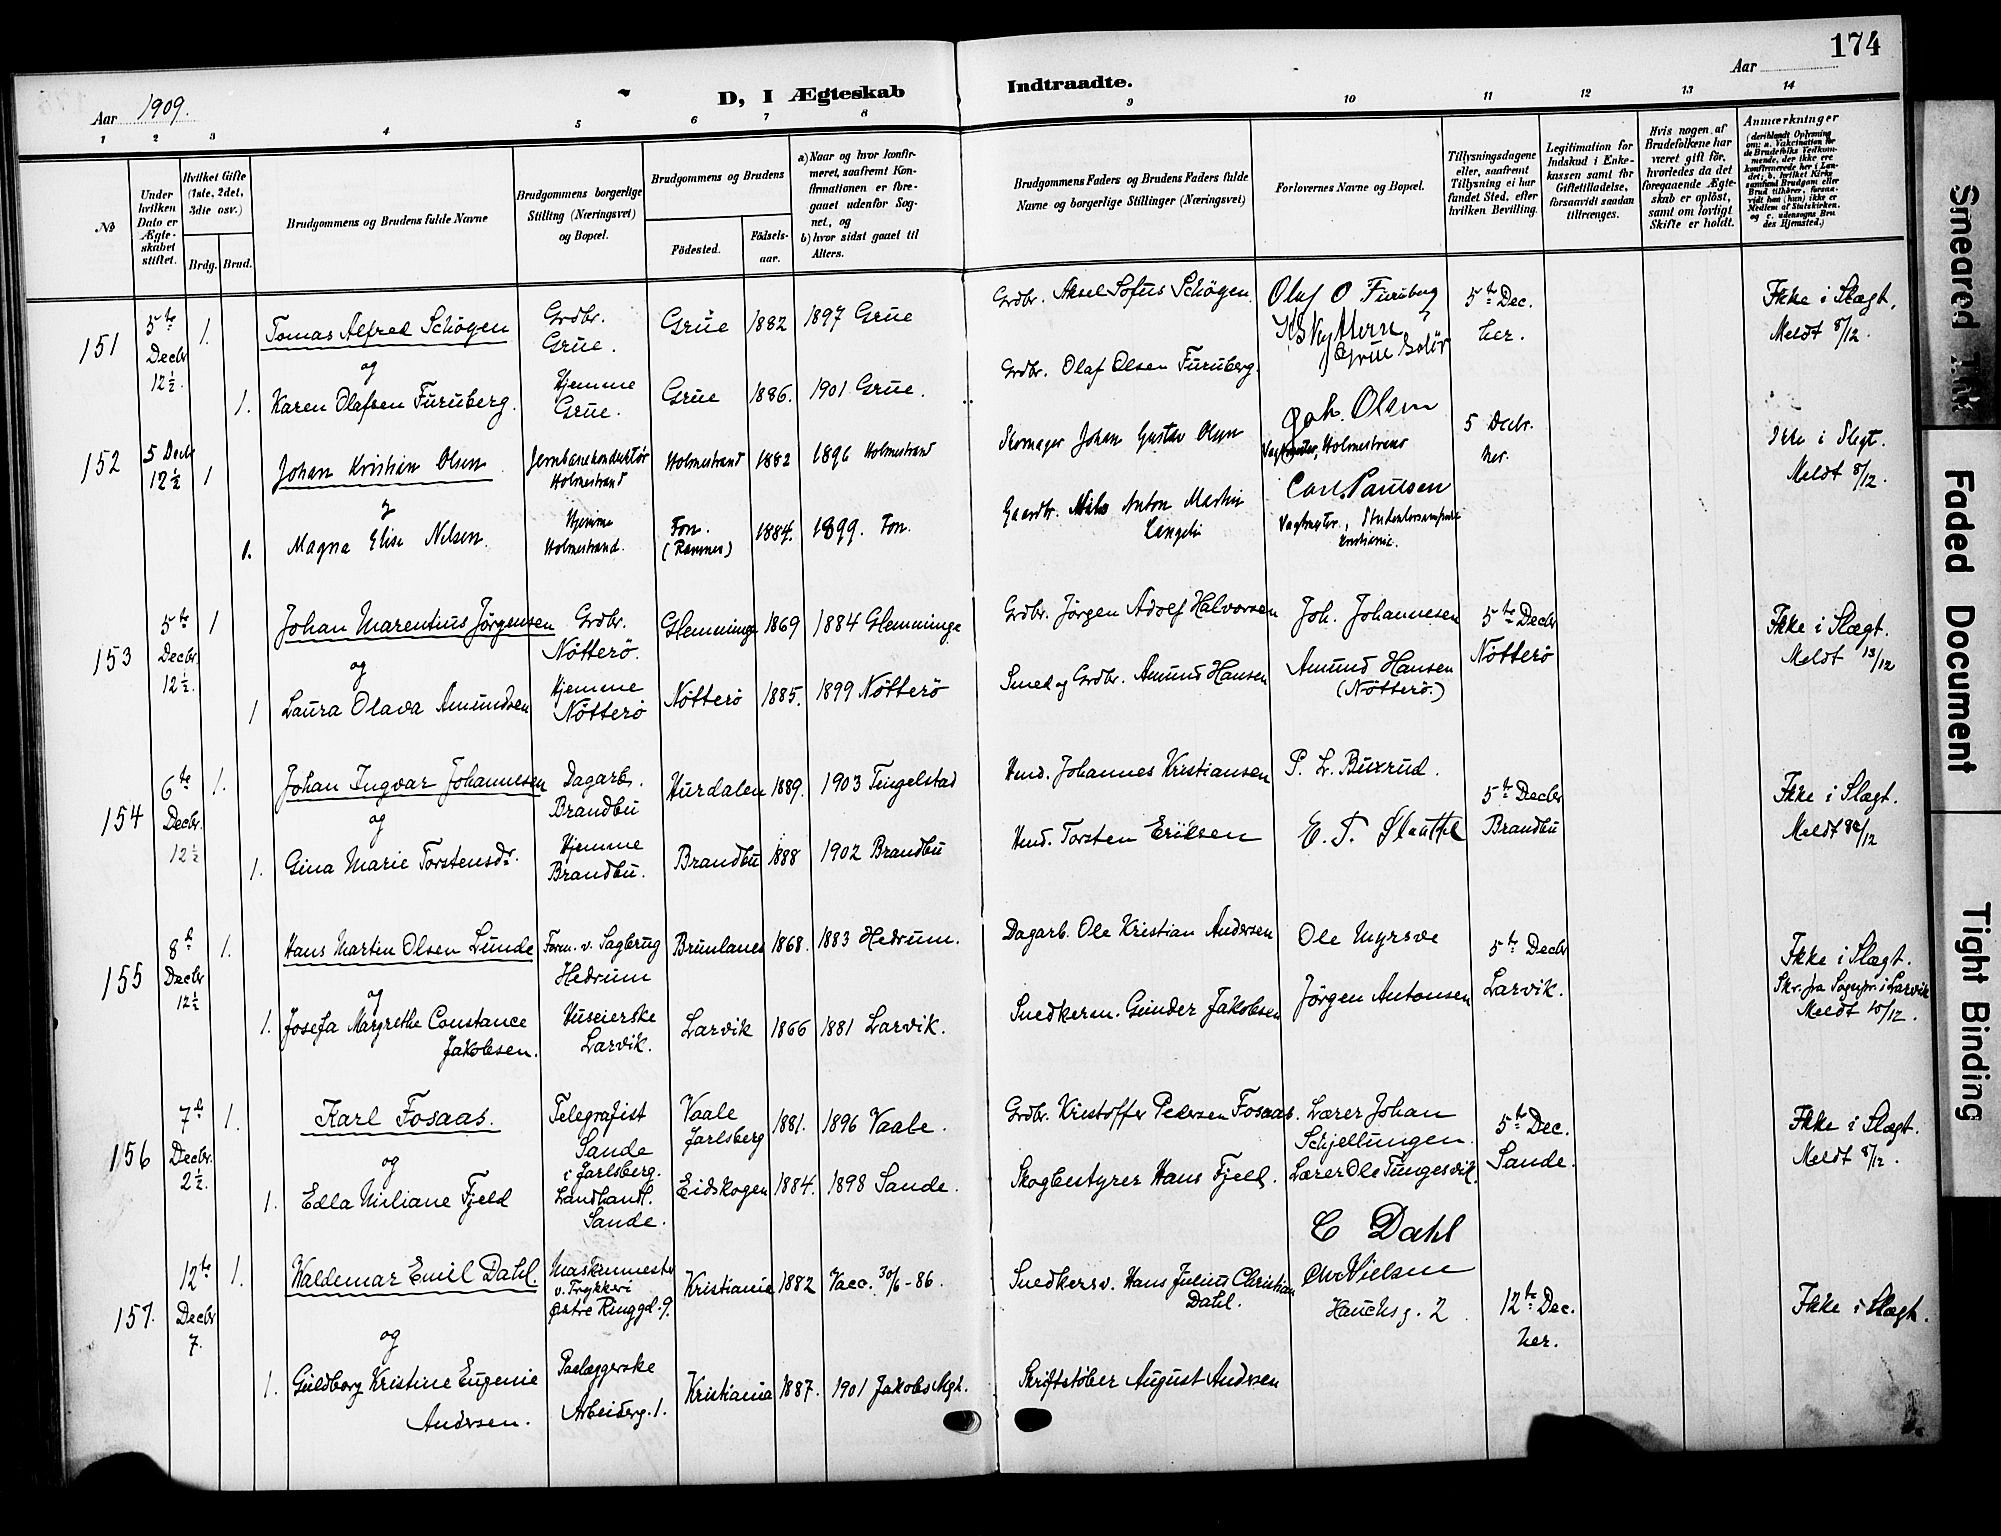 174
Aar 1909.
D, I Ægteskab Indtraadte.
Aar
1 2 3 4 5 6 7 8 9 10 11 12 13 14
№
Under hvilken Dato er Ægteskabet stiftet.
Hvilket Gifte (1ste, 2det, 3die osv.)
Brdg. Brud.
Brudgommens og Brudens fulde Navne
Brudgommens borgerlige Stilling (Næringsvei) og Bopæl.
Brudgommens og Brudens
Födested. Födselsaar.
a) Naar og hvor konfirmeret, saafremt Konfirmationen er foregaaet udenfor Sognet, og
b) hvor sidst gaaet til Alters.
Brudgommens Faders og Brudens Faders fulde Navne og borgerlige Stillinger (Næringsvei)
Forlovernes Navne og Bopæl.
Tillysningsdagene eller, saafremt Tillysning ei har fundet Sted, efter hvilken Bevilling.
Legitimation for Indskud i Enkekassen samt for Giftetilladelse, forsaavidt saadan tiltrænges.
Hvis nogen af Brudefolkene har været gift för, hvorledes da det foregaaende Ægteskab er oplöst, samt om lovligt Skifte er holdt.
Anmærkninger
151 5te Decbr 12½. 1. Tomas Alfred Schøgen Grdbr. Grue. Grue 1882 1897 Grue Grdbr. Aksel Sofus Schøgen Olaf O Furuberg 5te Dec. her. Ikke i Slægt, Meldt 8/12.
og
1. Karen Olafsen Furuberg. Hjemme Grue. Grue 1886. 1901 Grue. Grdbr. Olaf Olsen Furuberg. Grue Solør
152 5 Decb 12½ 1 Johan Kristian Olsen Jernbanekonduktør Holmestrand Holmestrand 1882 1896 Holmestrand Skomager Johan Gustav Olsen Joh. Olsen Holmestrand 5 Decbr. her. Ikke i Slegt. Meldt 8/12.
1. Magna Elise Nelsen. Hjemme Holmestrand. Fon. (Ramnes) 1884. 1899. Fon. Gaardbr. Nils Anton Martin Carl Paulsen
153 5te Decbr. 12½. 1 Johan Marentius Jørgensen Grdbr. Nötterö. Glemminge 1869 1884 Glemminge Grdbr. Jörgen Adolf Halvorsen Joh. Johannesen 5te Decbr Nötterö Ikke i Slægt. Meldt 13/12
og
1 Laura Olava Amundsen Hjemme Nötterö Nötterö 1885. 1899 Nötterö Smed og Grdbr. Amund Hansen Amund Hansen (Nötterö.)
154 6te Decbr. 12½ 1. Johan Ingvar Johannesen Dagarb. Brandbu Hurdalen 1889. 1903 Tingelstad Hmd. Johannes Kristiansen P. L. Buxrud. 5te Decbr Brandbu Ikke i Slægt.
og
1. Gina Marie Torstensdr. Hjemme Brandbu. Brandbu 1888 1902 Brandbu Hmd. Torsten Eriksen
155 8d Decbr 12½ 1. Hans Martin Olsen Lunde Form. v. Sagbrug Hedrum Brunlanes 1868. 1883 Hedrum. Dagarb. Ole Kristian Andersen Ole Myrsve 5te Decbr Larvik. Ikke i Slægt. Skr. fra Sognepr. i Larvik Meldt 10/12.
og
1. Josefa Margrethe Constance Jakobsen. Huseierske Larvik. Larvik 1866 1881 Larvik. Snedkerm. Gunder Jakobsen Jörgen Antonsen
156 7d Decbr. 2½. 1. Karl Fosaas. Telegrafist Sande i Jarlsberg. Vaale Jarlsberg 1881. 1896 Vaale. Grdbr. Kristoffer Pedersen Fosaas. Lærer Johan Schjellungen. 5te Dec. Sande. Ikke i Slægt. Meldt 8/12.
og
1. Edla Miliane Fjeld Landhandl. Sande. Eidskogen 1884. 1898 Sande. Skogbestyrer Hans Fjeld. Lærer Ole Tungesvik.
157. 12te Decbr 7. 1. Waldemar Emil Dahl. Maskinmester v. Trykkeri Østre Ringgd. 9. Kristiania 1882 Vacc. 30/6-86. Snedkersv. Hans Julius Christian Dahl. C Dahl Chr Nielsen Hauchsg. 2 12te Dec. her. Ikke i Slægt.
og
1. Guldborg Kristine Eugenie Andersen. Paalæggerske Arbeiderg. 1. Kristiania 1887. 1901 Jakobs Mgh. Skriftstöber August Andersen
Smeared Ink
Faded Document
Tight Binding